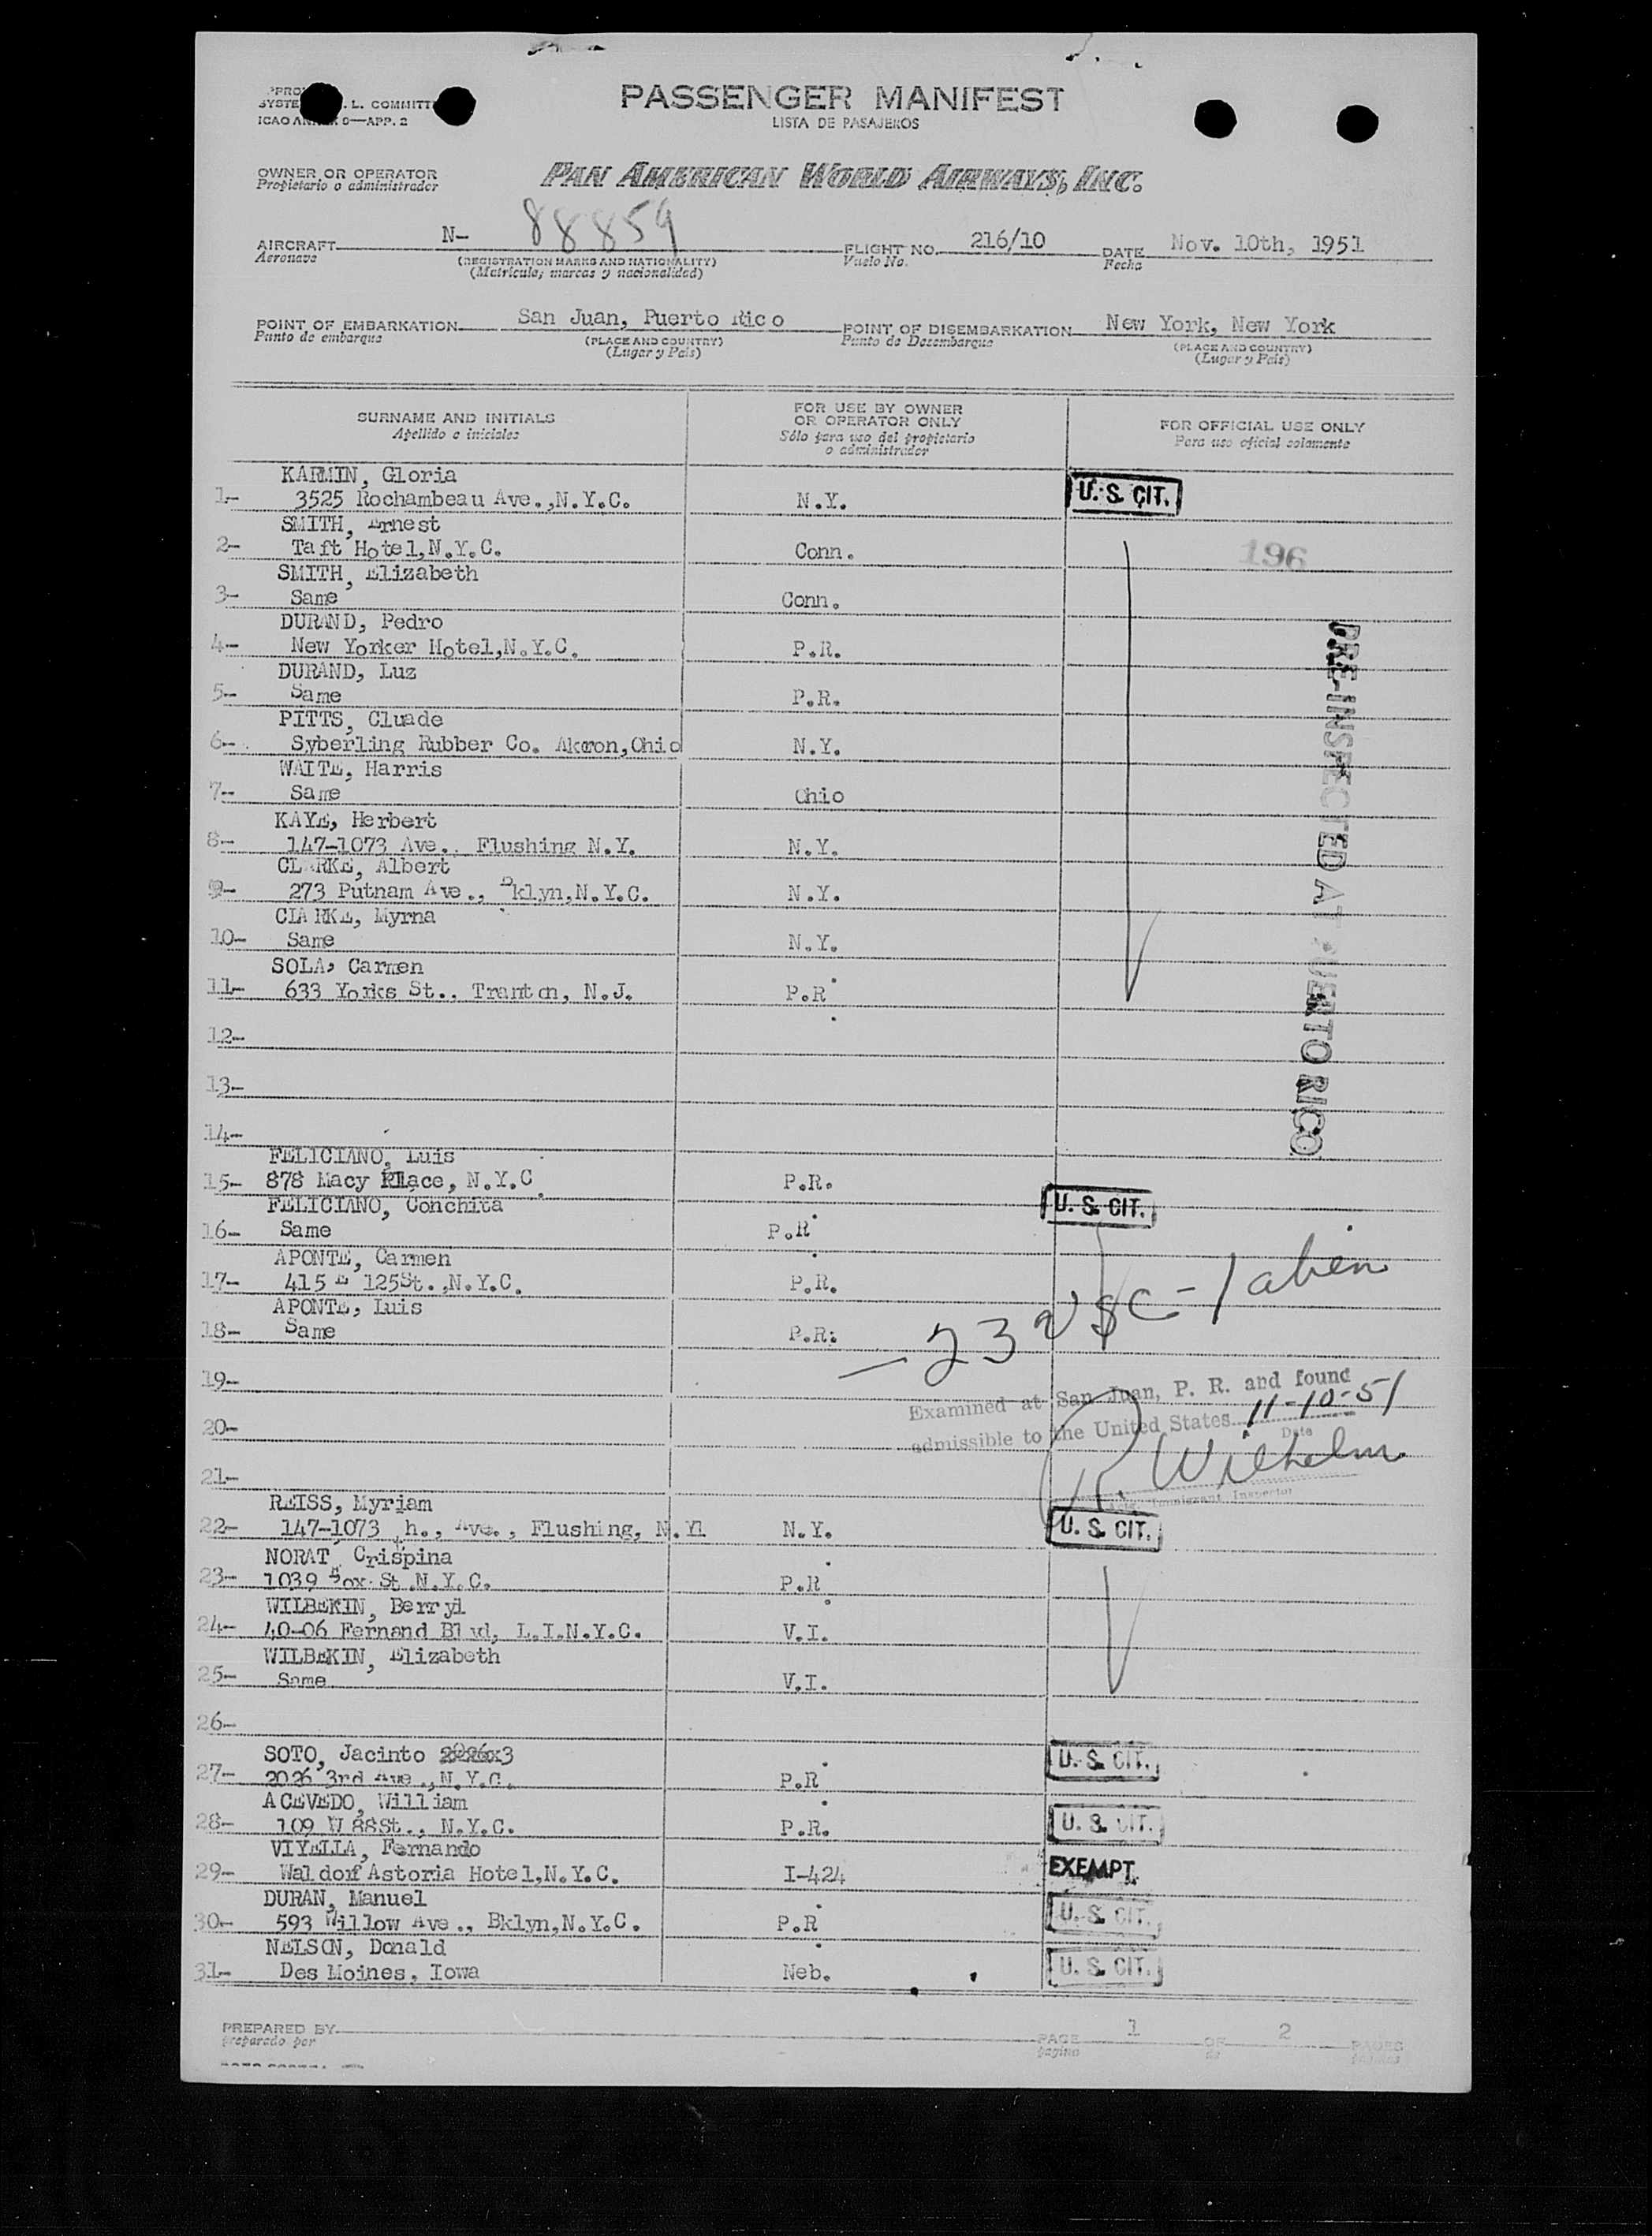 PASSENGER MANIFEST
LISTA DE PASAJEROS
L. COMMITT
ICAO 9—APP. 2
OWNER OR OPERATOR
Propietario o administrador
PAN AMERICAN WORLD AIRWAYS, INC.
AIRCRAFT N- 88859 FLIGHT NO. 216/10 DATE Nov. 10th, 1951
Aeronave (REGISTRATION MARKS AND NATIONALITY) Vuelo No. Fecha
(Matrícula; marcas y nacionalidad)
POINT OF EMBARKATION San Juan, Puerto Rico POINT OF DISEMBARKATION New York, New York
Punto de embarque (PLACE AND COUNTRY) Punto de Desembarque (PLACE AND COUNTRY)
(Lugar y País) (Lugar y País)
SURNAME AND INITIALS
Apellido e iniciales
FOR USE BY OWNER
OR OPERATOR ONLY
Sólo para uso del propietario
o administrador
FOR OFFICIAL USE ONLY
Para uso oficial solamente
KARMIN, Gloria
1- 3525 Rochambeau Ave.,N.Y.C. N.Y. U. S. CIT.
SMITH, Ernest
2- Taft Hotel,N.Y.C. Conn. 196
SMITH, Elizabeth
3- Same Conn.
DURAND, Pedro
4- New Yorker Hotel,N.Y.C. P.R.
DURAND, Luz
5- Same P.R.
PITTS, Cluade
6- Syberling Rubber Co. Akoron,Ohio N.Y.
WAITE, Harris
7- Same Ohio
KAYE, Herbert
8- 147-1073 Ave., Flushing N.Y. N.Y.
CLARKE, Albert
9- 273 Putnam Ave., Bklyn,N.Y.C. N.Y.
CLARKE, Myrna
10- Same N.Y.
SOLA, Carmen
11- 633 Yorks St., Tranton, N.J. P.R.
PRE-INSPECTED AT PUERTO RICO
12-
13-
14-
FELICIANO, Luis
15- 878 Macy Place, N.Y.C. P.R.
FELICIANO, Conchita U. S. CIT.
16- Same P.R.
APONTE, Carmen
17- 415 E 125St.,N.Y.C. P.R.
APONTE, Luis
18- Same P.R.
—23 USC-1 alien
19-
Examined at San Juan, P. R. and found
20- admissible to the United States 11-10-51
Date
21- R. Wilhelm
Immigrant Inspector
REISS, Myriam
22- 147-1073 h., Ave., Flushing, N.Y. N.Y. U. S. CIT.
NORAT, Crispina
23- 1039 Fox St N.Y.C. P.R.
WILBEKIN, Berryl
24- 40-06 Fernand Blvd, L.I.N.Y.C. V.I.
WILBEKIN, Elizabeth
25- Same V.I.
26-
SOTO, Jacinto
27- 2026 3rd Ave.,N.Y.C. P.R. U. S. CIT.
ACEVEDO, William
28- 109 W 88St., N.Y.C. P.R. U. S. CIT.
VIYELLA, Fernando
29- Waldorf Astoria Hotel,N.Y.C. I-424 EXEMPT
DURAN, Manuel
30- 593 Willow Ave., Bklyn,N.Y.C. P.R. U. S. CIT.
NELSON, Donald
31- Des Moines, Iowa Neb. U. S. CIT.
PREPARED BY PAGE 1 OF 2 PAGES
preparado por página de páginas